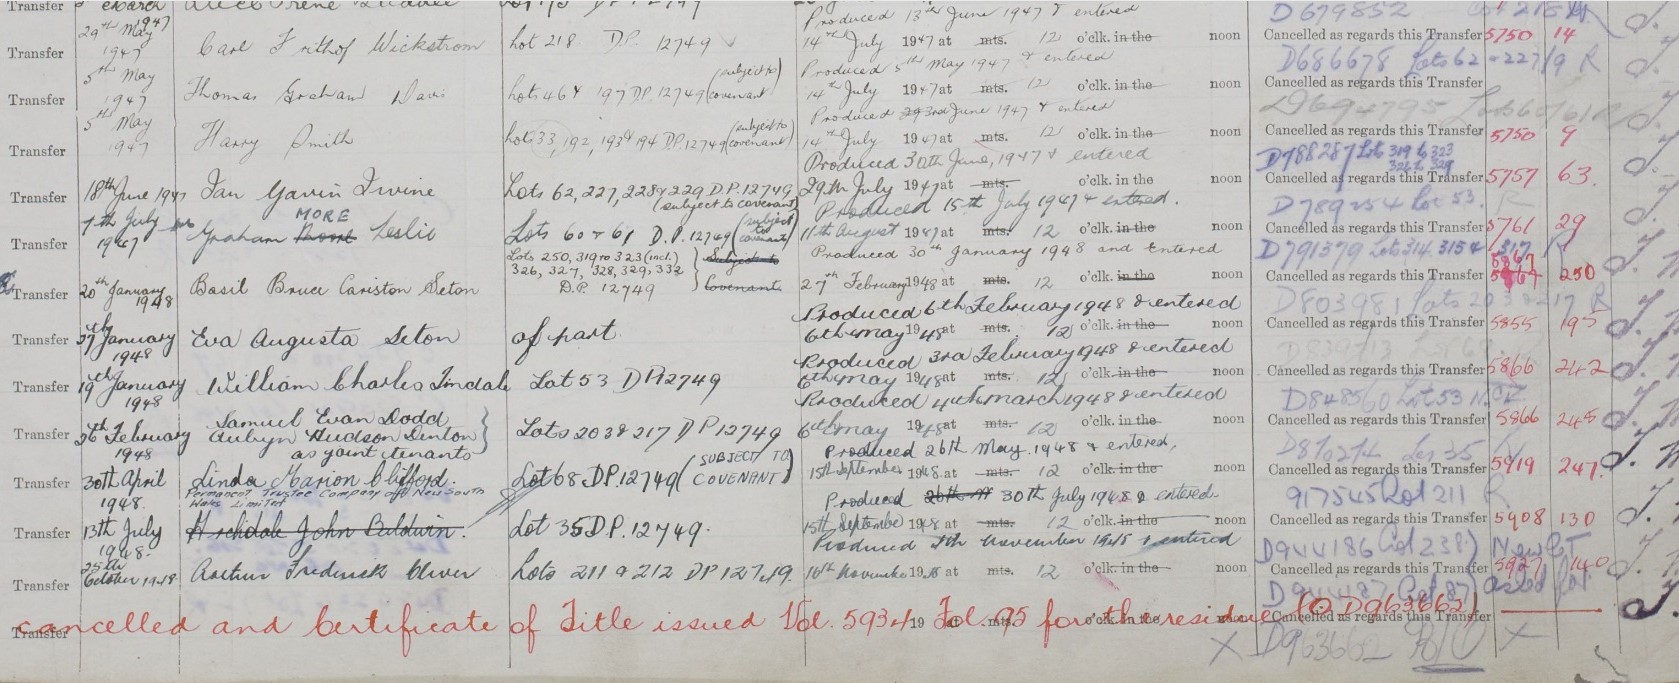 Transfer March Alice Irene DP 12749
29th May 1947 Produced 13th June 1947 & entered D679852
Transfer 1947 Carl Frithof Wickstrom Lot 218 D.P. 12749 14th July 1947 at mts. 12 o'clk. in the noon Cancelled as regards this Transfer 5750 14
5th May Produced 5th May 1947 & entered D686678 Lots 62 & 227/9 R
Transfer 1947 Thomas Graham Davis Lots 46 & 197 D.P. 12749 (subject to covenant) 14th July 1947 at mts. 12 o'clk. in the noon Cancelled as regards this Transfer
5th May Produced 3rd June 1947 & entered D694795 Lots 60/61 R
Transfer 1947 Harry Smith Lots 33, 192, 193 & 194 D.P. 12749 (subject to covenant) 14th July 1947 at mts. 12 o'clk. in the noon Cancelled as regards this Transfer 5750 9
Produced 30th June, 1947 & entered D788287 Lots 319 to 323 326 to 329
Transfer 18th June 1947 Ian Gavin Irvine Lots 62, 227, 228 & 229 D.P. 12749 (subject to covenant) 29th July 1947 at mts. o'clk. in the noon Cancelled as regards this Transfer 5757 63
7th July MORE Produced 15th July 1947 & entered. D789254 Lot 53. R
Transfer 1947 Graham Moore Leslie Lots 60 & 61 D.P. 12749 (subject to covenant) 11th August 1947 at mts. 12 o'clk. in the noon Cancelled as regards this Transfer 5761 29
Lots 250, 319 to 323 (incl.) Subject to Produced 30th January 1948 and entered D791379 Lots 314, 315 & 317 R
326, 327, 328, 329, 332 5867
Transfer 20th January 1948 Basil Bruce Cariston Seton D.P. 12749 Covenant 27th February 1948 at mts. 12 o'clk. in the noon Cancelled as regards this Transfer 250
Produced 6th February 1948 & entered D803981 Lots 203 & 217 R
Transfer 27th January 1948 Eva Augusta Seton of part 6th May 1948 at mts. 12 o'clk. in the noon Cancelled as regards this Transfer 5855 195
Produced 3rd February 1948 & entered
Transfer 19th January 1948 William Charles Tindale Lot 53 DP 12749 6th May 1948 at mts. 12 o'clk. in the noon Cancelled as regards this Transfer 5866 242
Samuel Evan Dodd Produced 4th March 1948 & entered D848560 Lot 53
Transfer 26th February 1948 Aubyn Hudson Denton Lots 203 & 217 DP 12749 6th May 1948 at mts. 12 o'clk. in the noon Cancelled as regards this Transfer 5866 245
as joint tenants Produced 26th May 1948 & entered, D870274 Lot 35
Transfer 30th April 1948. Linda Marion Clifford. Lot 68 DP. 12749 (SUBJECT TO COVENANT) 15th September 1948 at mts. 12 o'clk. in the noon Cancelled as regards this Transfer 5919 247
Permanent Trustee Company of New South Wales Limited Produced 26th 30th July 1948 & entered 917545 Lot 211 R
Transfer 13th July 1948. Archdale John Baldwin. Lot 35 D.P. 12749. 15th September 1948 at mts. 12 o'clk. in the noon Cancelled as regards this Transfer 5908 130
25th Produced November 1948 & entered D944186 (Lot 238) New CT
Transfer October 1948 Arthur Frederick Oliver Lots 211 & 212 DP 12749. 16th November 1948 at mts. 12 o'clk. in the noon Cancelled as regards this Transfer 5927 140
D944187 (Lot 87) asked for
Transfer cancelled and Certificate of Title issued Vol. 5934 Fol. 95 for the residue (D963662) 19 at mts. o'clk. in the noon Cancelled as regards this Transfer
X D963662 X